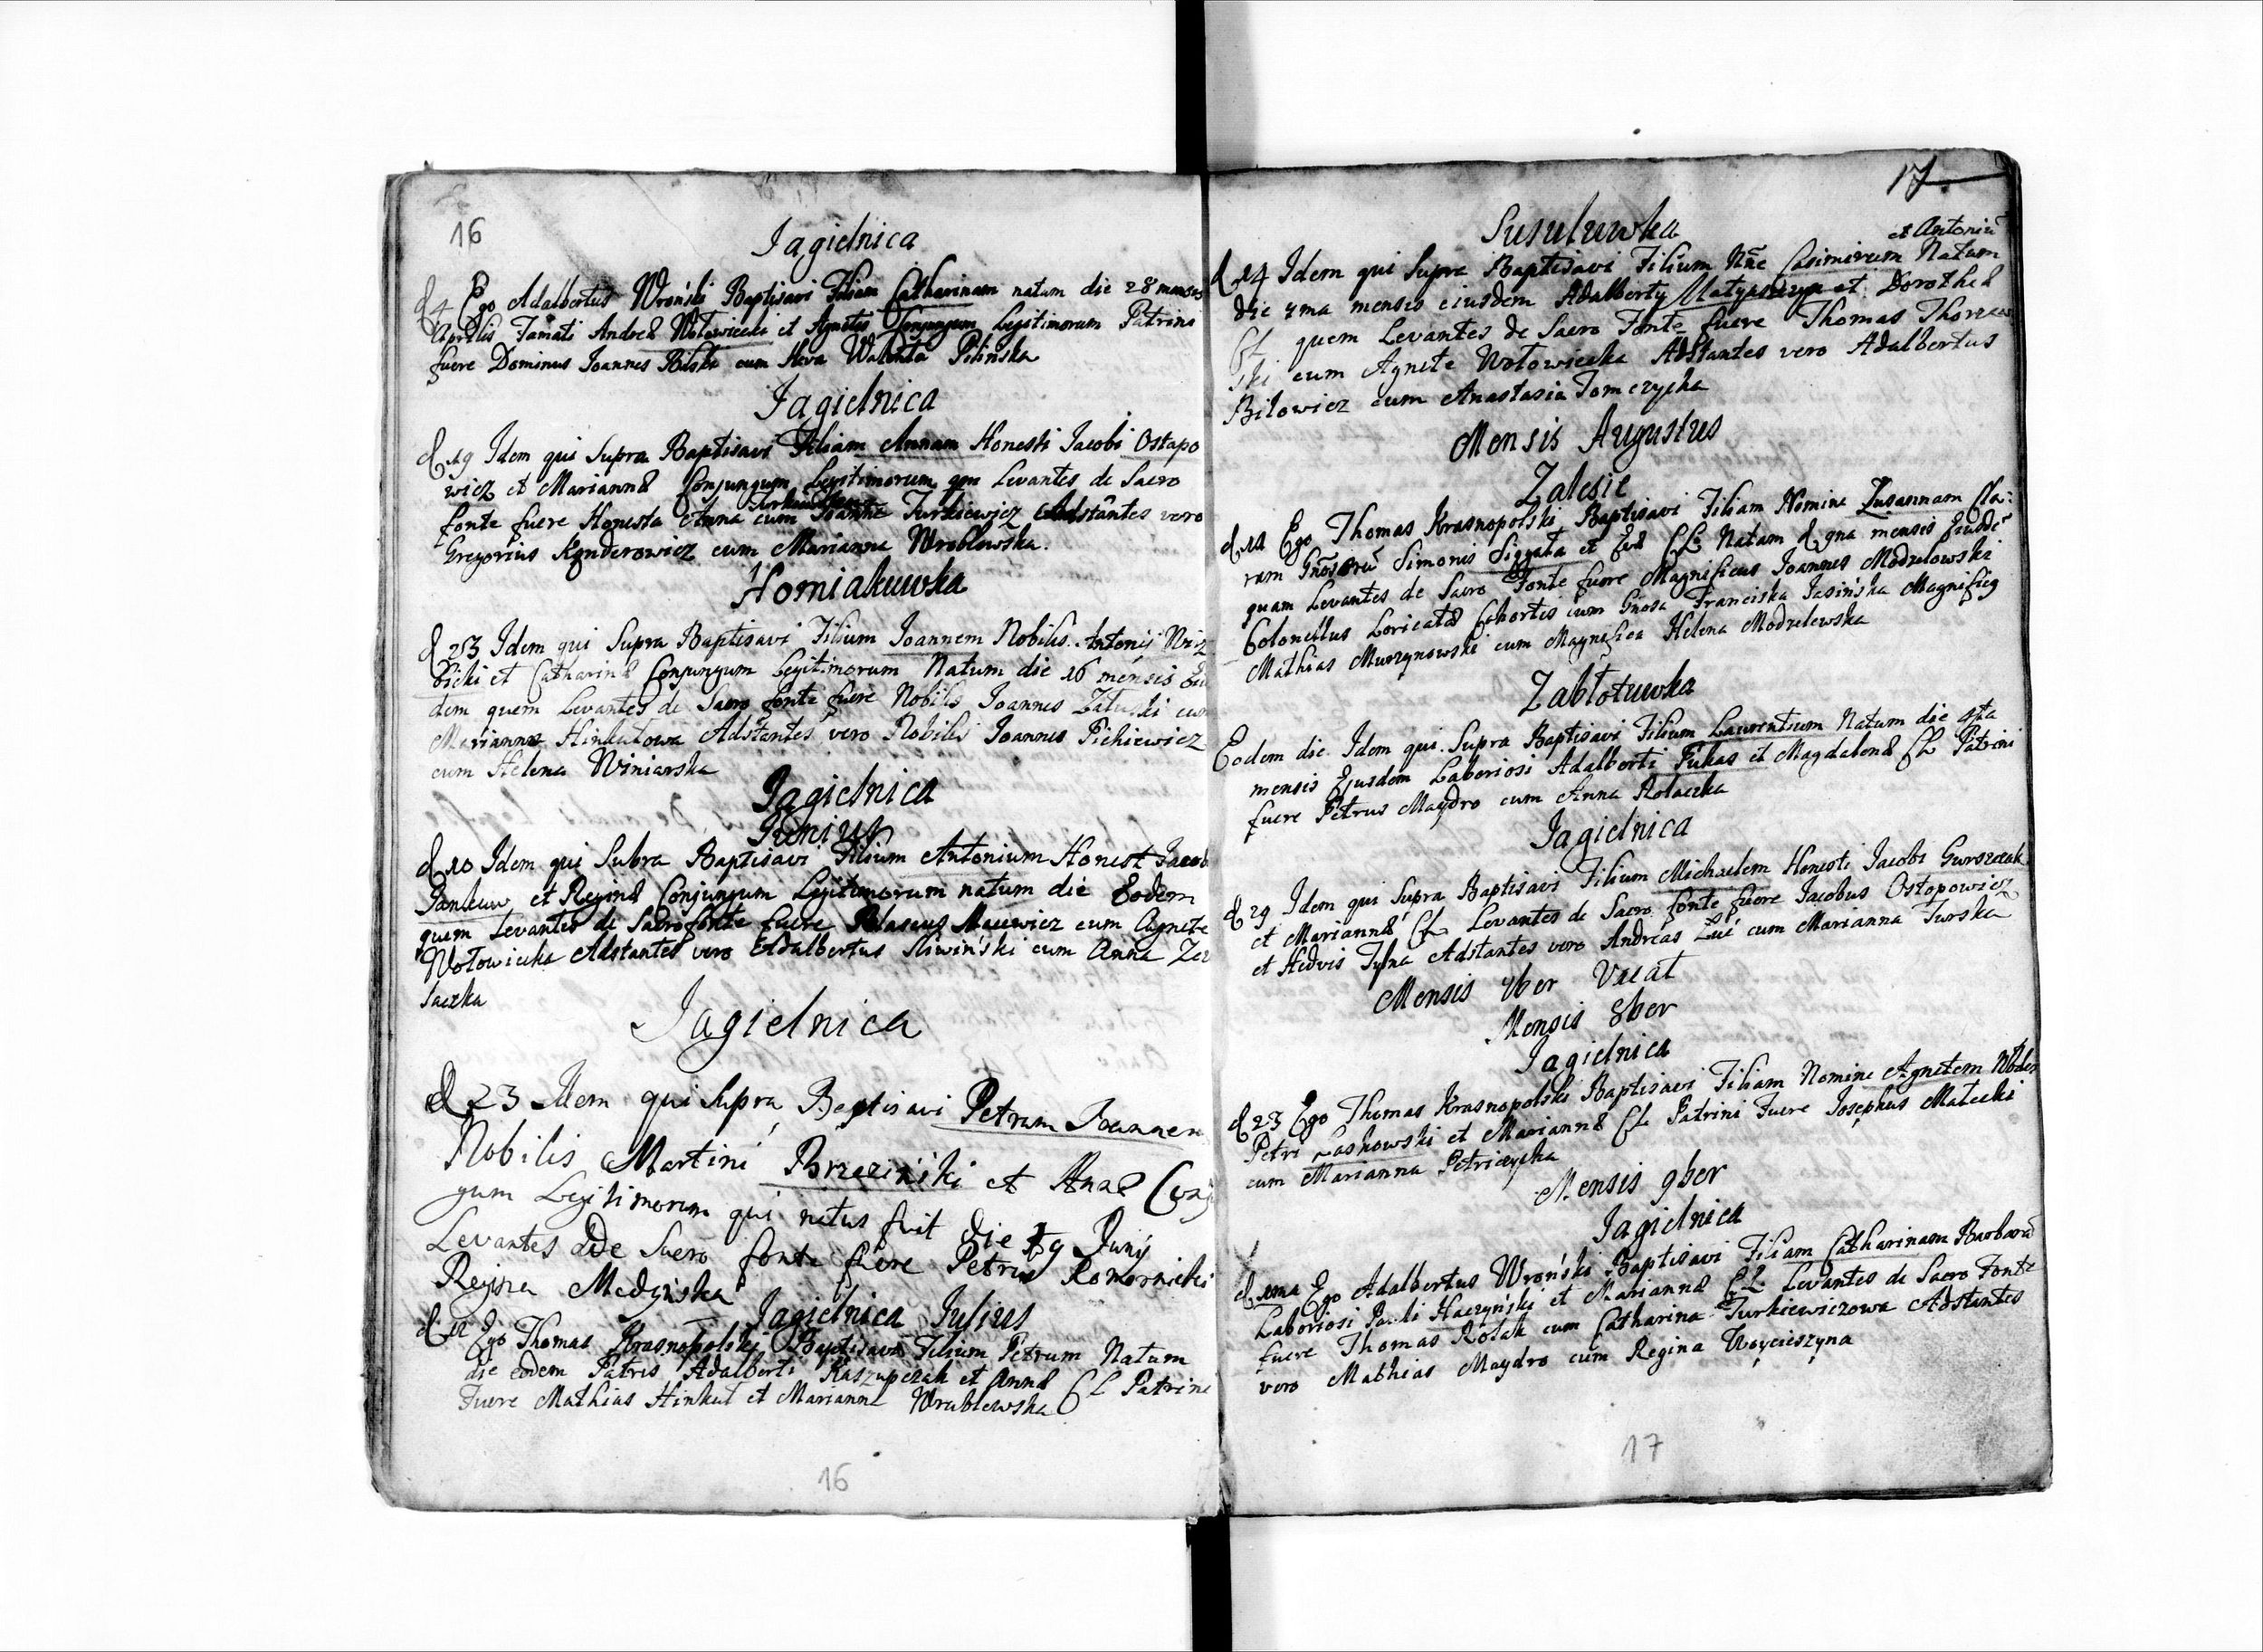 16
Jagielnica
d 4 Ego Adalbertus Wroński Baptisavi Filiam Catharinam natam die 28 mensis
Aprilis Famati Andreæ Wołowiecki et Agnetis Conjungum Legitimorum Patrini
fuere Dominus Joannes Bilski cum Heva Pilińska
Jagielnica
d 19 Idem qui Supra Baptisavi Filiam Annam Honesti Jacobi Ostapo
wicz et Mariannæ Conjungum Legitimorum qm Levantes de Sacro
fonte fuere Honesta Anna cum Joanne Turkiewicz Adstantes vero
Gregorius Kęnderowicz cum Marianna Wroblowska.
Homiakuwka
d 253 Idem qui Supra Baptisavi Filium Joannem Nobilis. Antonij
bicki et Catharinæ Conjungum Legitimorum Natum die 16 mensis
dem quem Levantes de Sacro fonte fuere Nobilis Joannes Załuski cum
Marianna Hinkutowa Adstantes vero Nobilis Joannes Pickiewicz
cum Helena Winiarska
Jagielnica
Junius
d 10 Idem qui Subra Baptisavi Filium Antonium Honest Jacob
et Reginæ Conjungum Legitimorum natum die Eodem
quem Levantes de Sacrofonte fuere Blaseus Macewicz cum Agnete
Wołowiecka Adstantes vero Adalbertus Sliwiński cum Anna
saczka
Jagielnica
d 23 Idem qui Supra Baptisavi Petrum Joannem
Nobilis Martini Brzeziński et Anæ
gum Legitimorum qui natus fuit die 19 Junij
Levantes de Sacro fonte fuere Petrus Komornicki
Regina Medyńska
Jagielnica Julius
d 12 Ego Thomas Krasnopolski Baptisavi Filium Petrum Natum
die eodem Patris Adalberti Kaszupczak et Annæ CL Patrini
Fuere Mathias Hinkut et Marianna Wrublewska
16
17
Susuluwka
et Antoniu
d 14 Idem qui Supra Baptisavi Filium Nne Casimirum Natum
die 7ma mensis eiusdem Adalberty et Dorotheæ
CL quem Levantes de Sacro Fonte fuere Thomas
ski cum Agnete Wołowiecka Adstantes vero Adalbertus
Bilowicz cum Anastasia Tomczycka
Mensis Augustus
Zalesie
d 11 Ego Thomas Krasnopolski Baptisavi Filiam Nomine Zusannam Cla:
rum Simonis et CL Natam d 9na mensis
quam Levantes de Sacro Fonte fuere Magnificus Joannes Modzelowski
Colonellus Loricatæ Cohortis cum Gnosa Franciska Jasińska Magnificq
Mathias Muczynowski cum Magnifica Helena Modzelewska
Zabłotuwka
Eodem die Idem qui Supra Baptisavi Filium Laurentium Natum die 4ta
mensis Ejusdem Laboriosi Adalberti Fukas et Magdalenæ CL Patrini
fuere Petrus Maydro cum Anna Rolaczka
Jagielnica
d 29 Idem qui Supra Baptisavi Filium Michaelem Honesti Jacobi Gwrszczak
et Mariannæ CL Levantes de Sacro fonte fuere Jacobus Ostopowicz
et Hedvis Tylna Adstantes vero Andreas Łuć cum Marianna Turska
Mensis 7ber Vacat
Mensis 8ber
Jagielnica
d 23 Ego Thomas Krasnopolski Baptisavi Filiam Nomine Agnetem
Petri Laskowski et Mariannæ CL Patrini Fuere Josephus Małecki
cum Marianna Petriczycka
Mensis 9ber
Jagielnica
d 1ma Ego Adalbertus Wroński Baptisavi Filiam Catharinam Barbara
Laboriosi Pauli Haczyński et Mariannæ CL Levantes de Sacro Fonte
fuere Thomas Rolak cum Catharina Turkiewiczowa Adstantes
vero Mathias Maydro cum Regina Woycieszyna
17